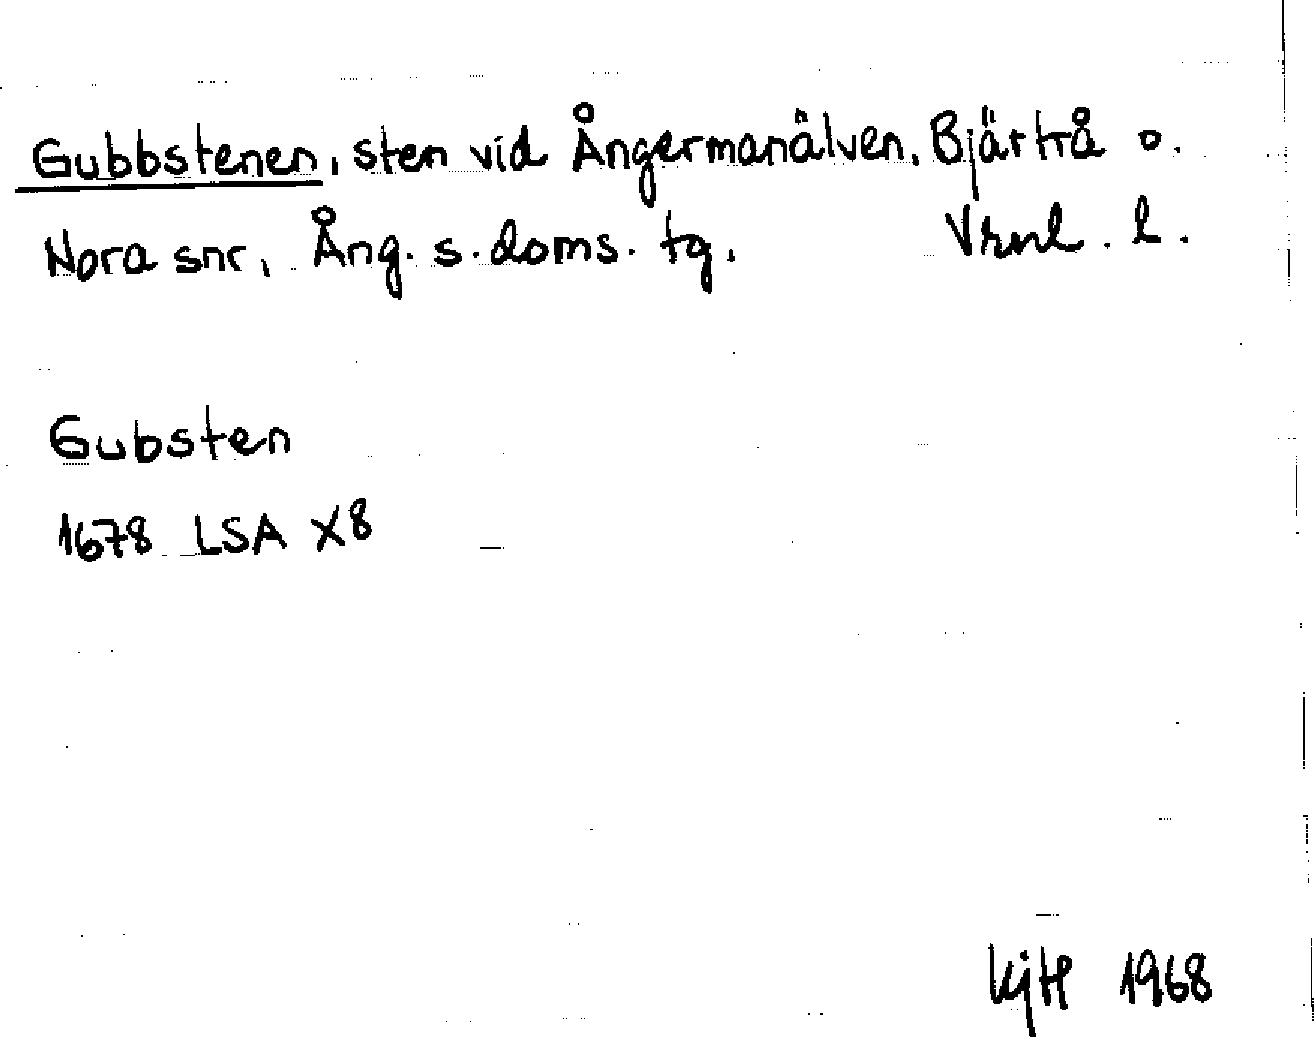 Gubbstenen, sten vid Ångermanälven, Bjärtrå o.
Nora snr, Ång. s. doms. tg. Vrnl. l.
Gubsten
1678 LSA X8
1968